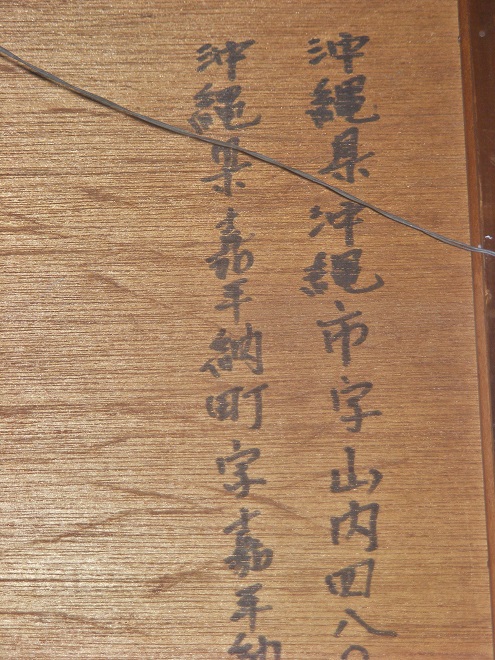 沖縄県沖縄市字山内四八〇
沖縄県嘉手納町字嘉手納